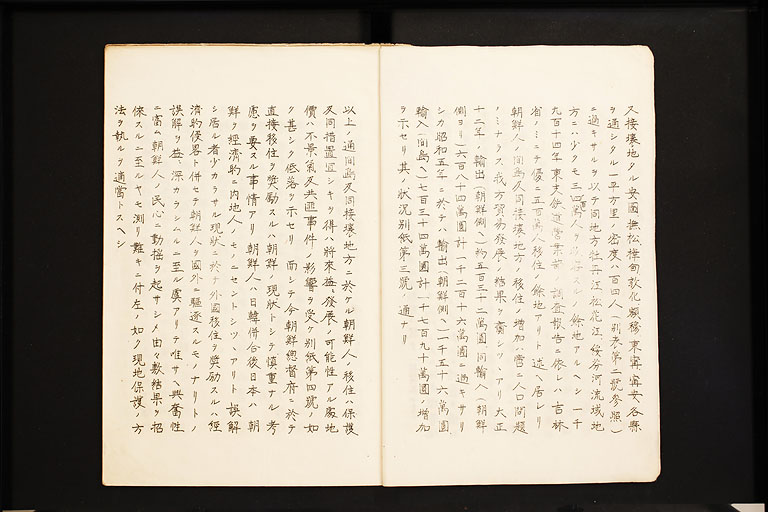 又接壤地タル安圖撫松樺甸敦化額穆東寧寧安各縣
ヲ通シタル一平方里ノ密度ハ百四人(別表第二號参照)
ニ過キサルヲ以テ同地方牡丹江松花江綏芬河流域地
方ニハ少クモ三四萬人ヲ スル餘地アルヘシ一千
九百十四年東支鉄道 業 調査報告ニ依レハ吉林
省ノミニテ優ニ五百萬人移住ノ餘地アリト述ヘ居レリ
朝鮮人ノ間島及同接壤地方ノ移住ノ増加ハ啻ニ人口問題
ノミナラス我方貿易発展ノ結果ヲ齎シツヽアリ大正
十二年ノ輸出(朝鮮側ヘ)約五百三十二萬圓同輸入(朝鮮
側ヨリ)六百八十四萬圓計一千二百十六萬圓ニ過キサリ
シカ昭和五年ニ於テハ輸出(朝鮮側ヘ)一千五十六萬圓
輸入(間島ヘ)七百三十四萬圓計一千七百九十萬圓ノ増加
ヲ示セリ其ノ状況別紙第三號ノ通ナリ
以上ノ通間島及同接壤地方ニ於ケル朝鮮人ノ移住ハ保護
及同措置宜シキヲ得ハ将來益々發展ノ可能性アル處地
價ハ不景氣及共匪事件ノ影響ヲ受ケ別紙第四號ノ如
ク甚シク低落ヲ示セリ 而シテ今朝鮮総督府ニ於テ
直接移住ヲ奬勵スルハ朝鮮ノ現状トシテ慎重ナル考
慮ヲ要スル事情アリ朝鮮人ハ日韓併合後日本ハ朝
鮮ヲ経濟的ニ内地人ノモノニセントシツヽアリト誤解
シ居ル者少カラサル現状ニ於テ外國移住ヲ奬励スルハ経
済的侵畧ト併セテ朝鮮人ヲ國外ニ驅逐スルモノナリトノ
誤解ヲ益々深カラシムルニ至ル虞アリテ唯サヘ興奮性
ニ富ム朝鮮人ノ民心ニ動揺ヲ起サシメ由々敷結果ヲ招
徠スルニ至ルヤモ測リ難キニ付左ノ如ク現地保護ノ方
法ヲ執ルヲ適當トスヘシ